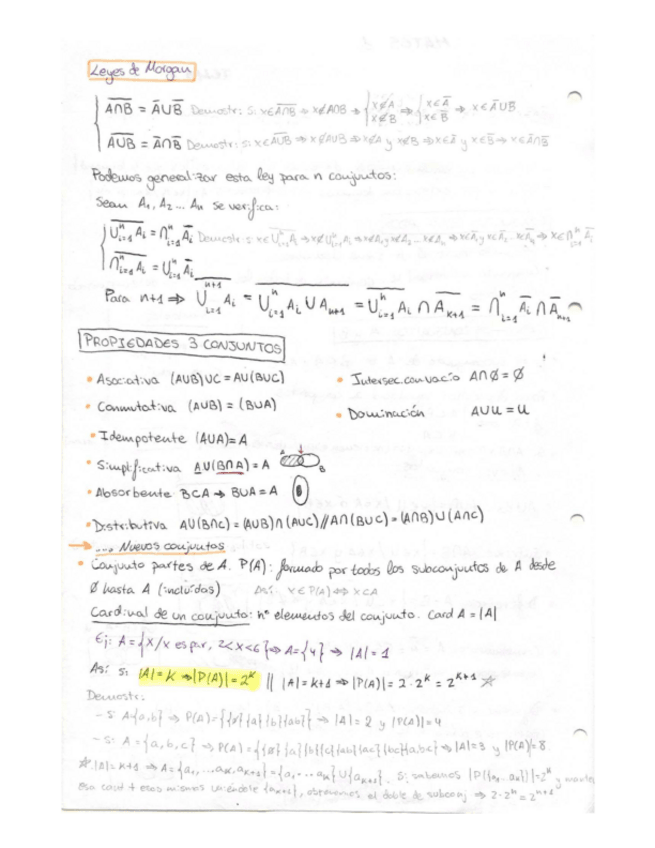 Leyes de Morgan
A̅∩̅B̅ = A̅ ∪ B̅ Demostr: Si x∈A̅∩̅B̅ ⇒ x∉A∩B ⇒ { x∉A x∉B ⇒ { x∈A̅ x∈B̅ ⇒ x∈A̅∪B̅
A̅∪̅B̅ = A̅ ∩ B̅ Demostr: Si x∈A̅∪̅B̅ ⇒ x∉A∪B ⇒ x∉A y x∉B ⇒ x∈A̅ y x∈B̅ ⇒ x∈A̅∩B̅
Podemos generalizar esta ley para n conjuntos:
Sean A₁, A₂ ... An se verifica:
\overline{⋃ⁿᵢ₌₁ Aᵢ} = ⋂ⁿᵢ₌₁ A̅ᵢ Demostr: Si x∈\overline{⋃ⁿᵢ₌₁ Aᵢ} ⇒ x∉⋃ⁿᵢ₌₁ Aᵢ ⇒ x∉A₁ y x∉A₂ ... x∉An ⇒ x∈A̅₁ y x∈A̅₂ .. x∈A̅n ⇒ x∈⋂ⁿᵢ₌₁ A̅ᵢ
\overline{⋂ⁿᵢ₌₁ Aᵢ} = ⋃ⁿᵢ₌₁ A̅ᵢ
Para n+1 ⇒ \overline{⋃ⁿ⁺¹ᵢ₌₁ Aᵢ} = \overline{⋃ⁿᵢ₌₁ Aᵢ ∪ An+1} = \overline{⋃ⁿᵢ₌₁ Aᵢ} ∩ \overline{Ak+1} = ⋂ⁿᵢ₌₁ A̅ᵢ ∩ A̅n+1
PROPIEDADES 3 CONJUNTOS
• Asociativa (A∪B)∪C = A∪(B∪C) • Intersec. con vacío A∩Ø = Ø
• Conmutativa (A∪B) = (B∪A) • Dominación A∪U = U
• Idempotente (A∪A) = A
• Simplificativa A∪(B∩A) = A A B
• Absorbente B⊂A ⇒ B∪A = A
• Distributiva A∪(B∩C) = (A∪B)∩(A∪C) // A∩(B∪C) = (A∩B)∪(A∩C)
→ .... Nuevos conjuntos
• Conjunto partes de A. P(A): formado por todos los subconjuntos de A desde
Ø hasta A (incluídos) Así: X∈P(A) ⇔ X⊂A
Cardinal de un conjunto: nº elementos del conjunto. Card A = |A|
Ej: A = {x/x es par, 2<x<6} ⇒ A={4} → |A| = 1
Así si |A| = k ⇒ |P(A)| = 2ᵏ || |A| = k+1 ⇒ |P(A)| = 2·2ᵏ = 2ᵏ⁺¹ ☆
Demostr:
- Si A{a,b} ⇒ P(A) = {{ø}{a}{b}{ab}} → |A| = 2 y |P(A)| = 4
- Si A = {a,b,c} ⇒ P(A) = {{ø}{a}{b}{c}{ab}{ac}{bc}{a,b,c} ⇒ |A|=3 y |P(A)| = 8
☆ |A| = k+1 ⇒ A = {a₁, ... ak, ak+1} = {a₁ ... ak} ∪ {ak+1}. Si sabemos |P({a₁ .. an})| = 2ⁿ y
esa card + esos mismos uniéndole {an+1}, obtenemos el doble de subconj ⇒ 2·2ⁿ = 2ⁿ⁺¹